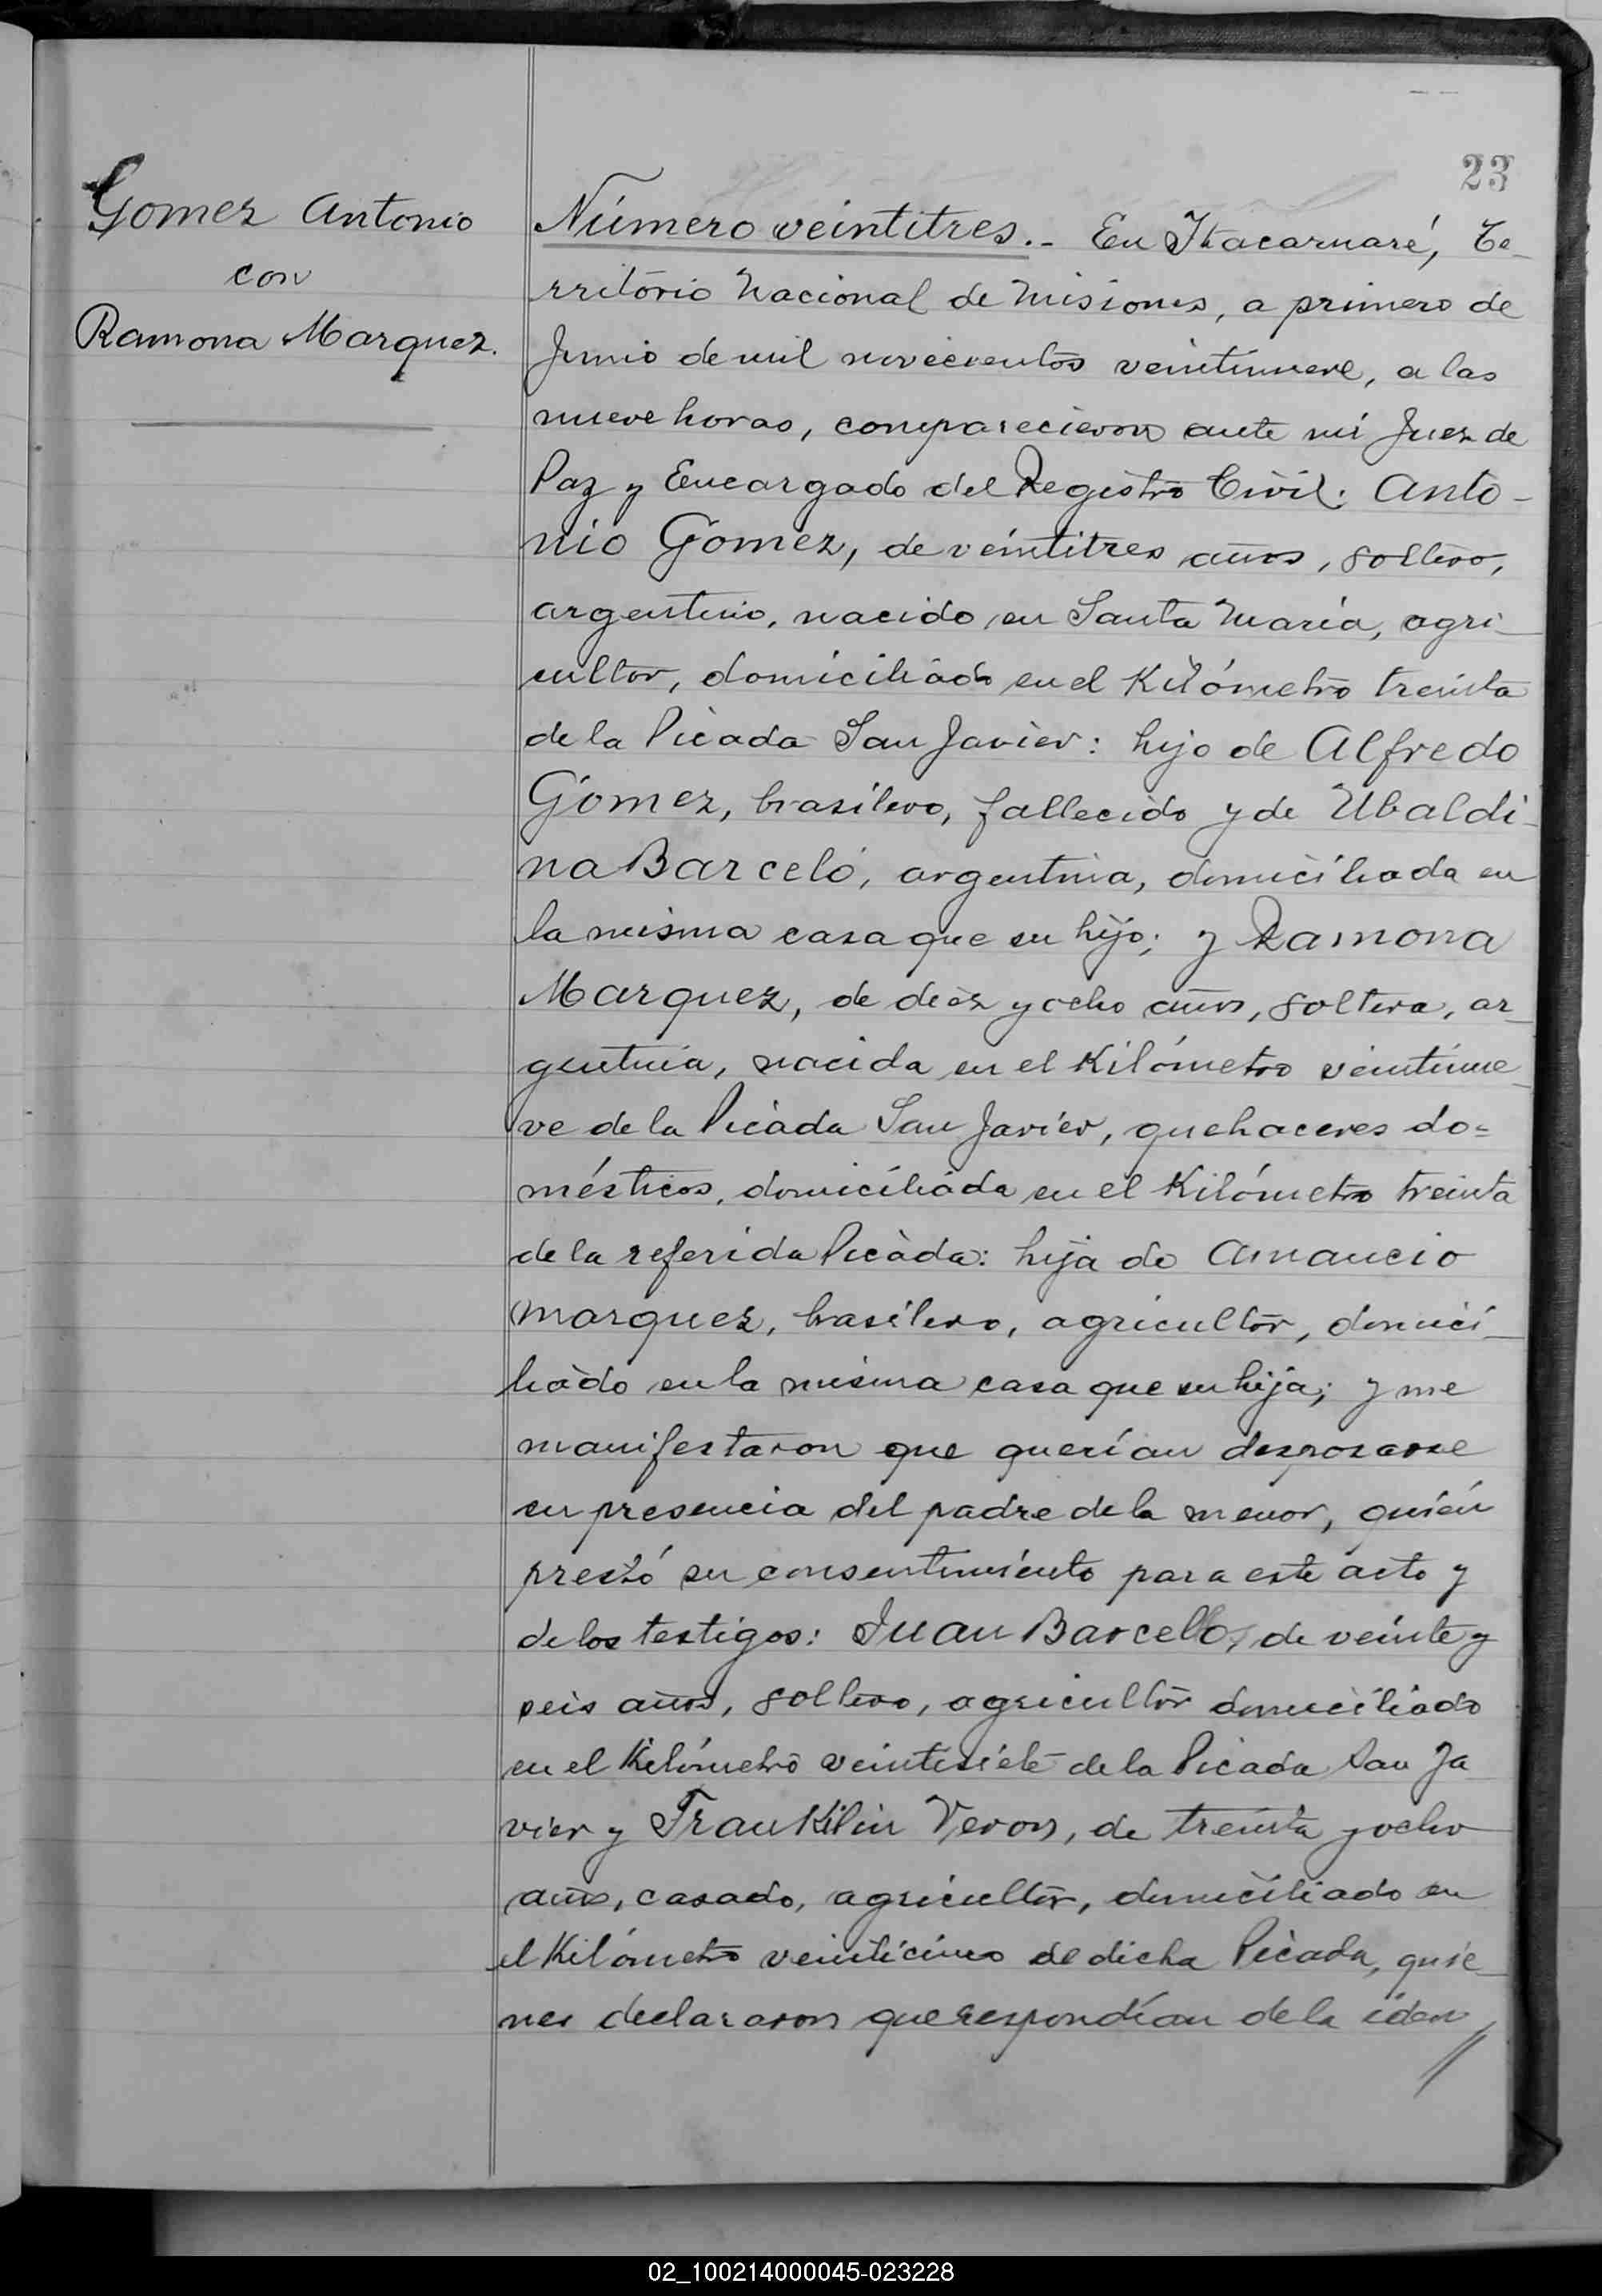 23
Gomez Antonio
con
Ramona Marquez.
Número veintitres.- En Itacaruaré, Te-
rritorio Nacional de Misiones, a primero de
Junio de mil novecientos veintinueve, a las
nueve horas, comparecieron ante mí Juez de
Paz y Encargado del Registro Civil: Anto-
nio Gomez, de veintitres años, soltero,
argentino, nacido en Santa María, agri-
cultor, domiciliado en el Kilómetro treinta
de la Picada San Javier: hijo de Alfredo
Gomez, brasilero, fallecido y de Ubaldi-
na Barceló, argentina, domiciliada en
la misma casa que su hijo; y Ramona
Marquez, de diez y ocho años, soltera, ar-
gentina, nacida en el Kilómetro veintinue-
ve de la Picada San Javier, quehaceres do=
mésticos, domiciliada en el Kilómetro treinta
de la referida Picada: hija de Amancio
Marquez, brasilero, agricultor, domici-
liado en la misma casa que su hija; y me
manifestaron que querían desposarse
en presencia del padre de la menor, quién
prestó su consentimiento para este acto y
de los testigos: Juan Barcello, de veinte y
seis años, soltero, agricultor domiciliado
en el Kilómetro veintisiete de la Picada San Ja-
vier y Frankilin Veron, de treinta y ocho
años, casado, agricultor, domiciliado en
el Kilómetro veinticinco de dicha Picada, quie-
nes declararon que respondían de la iden
//
02_100214000045-023228